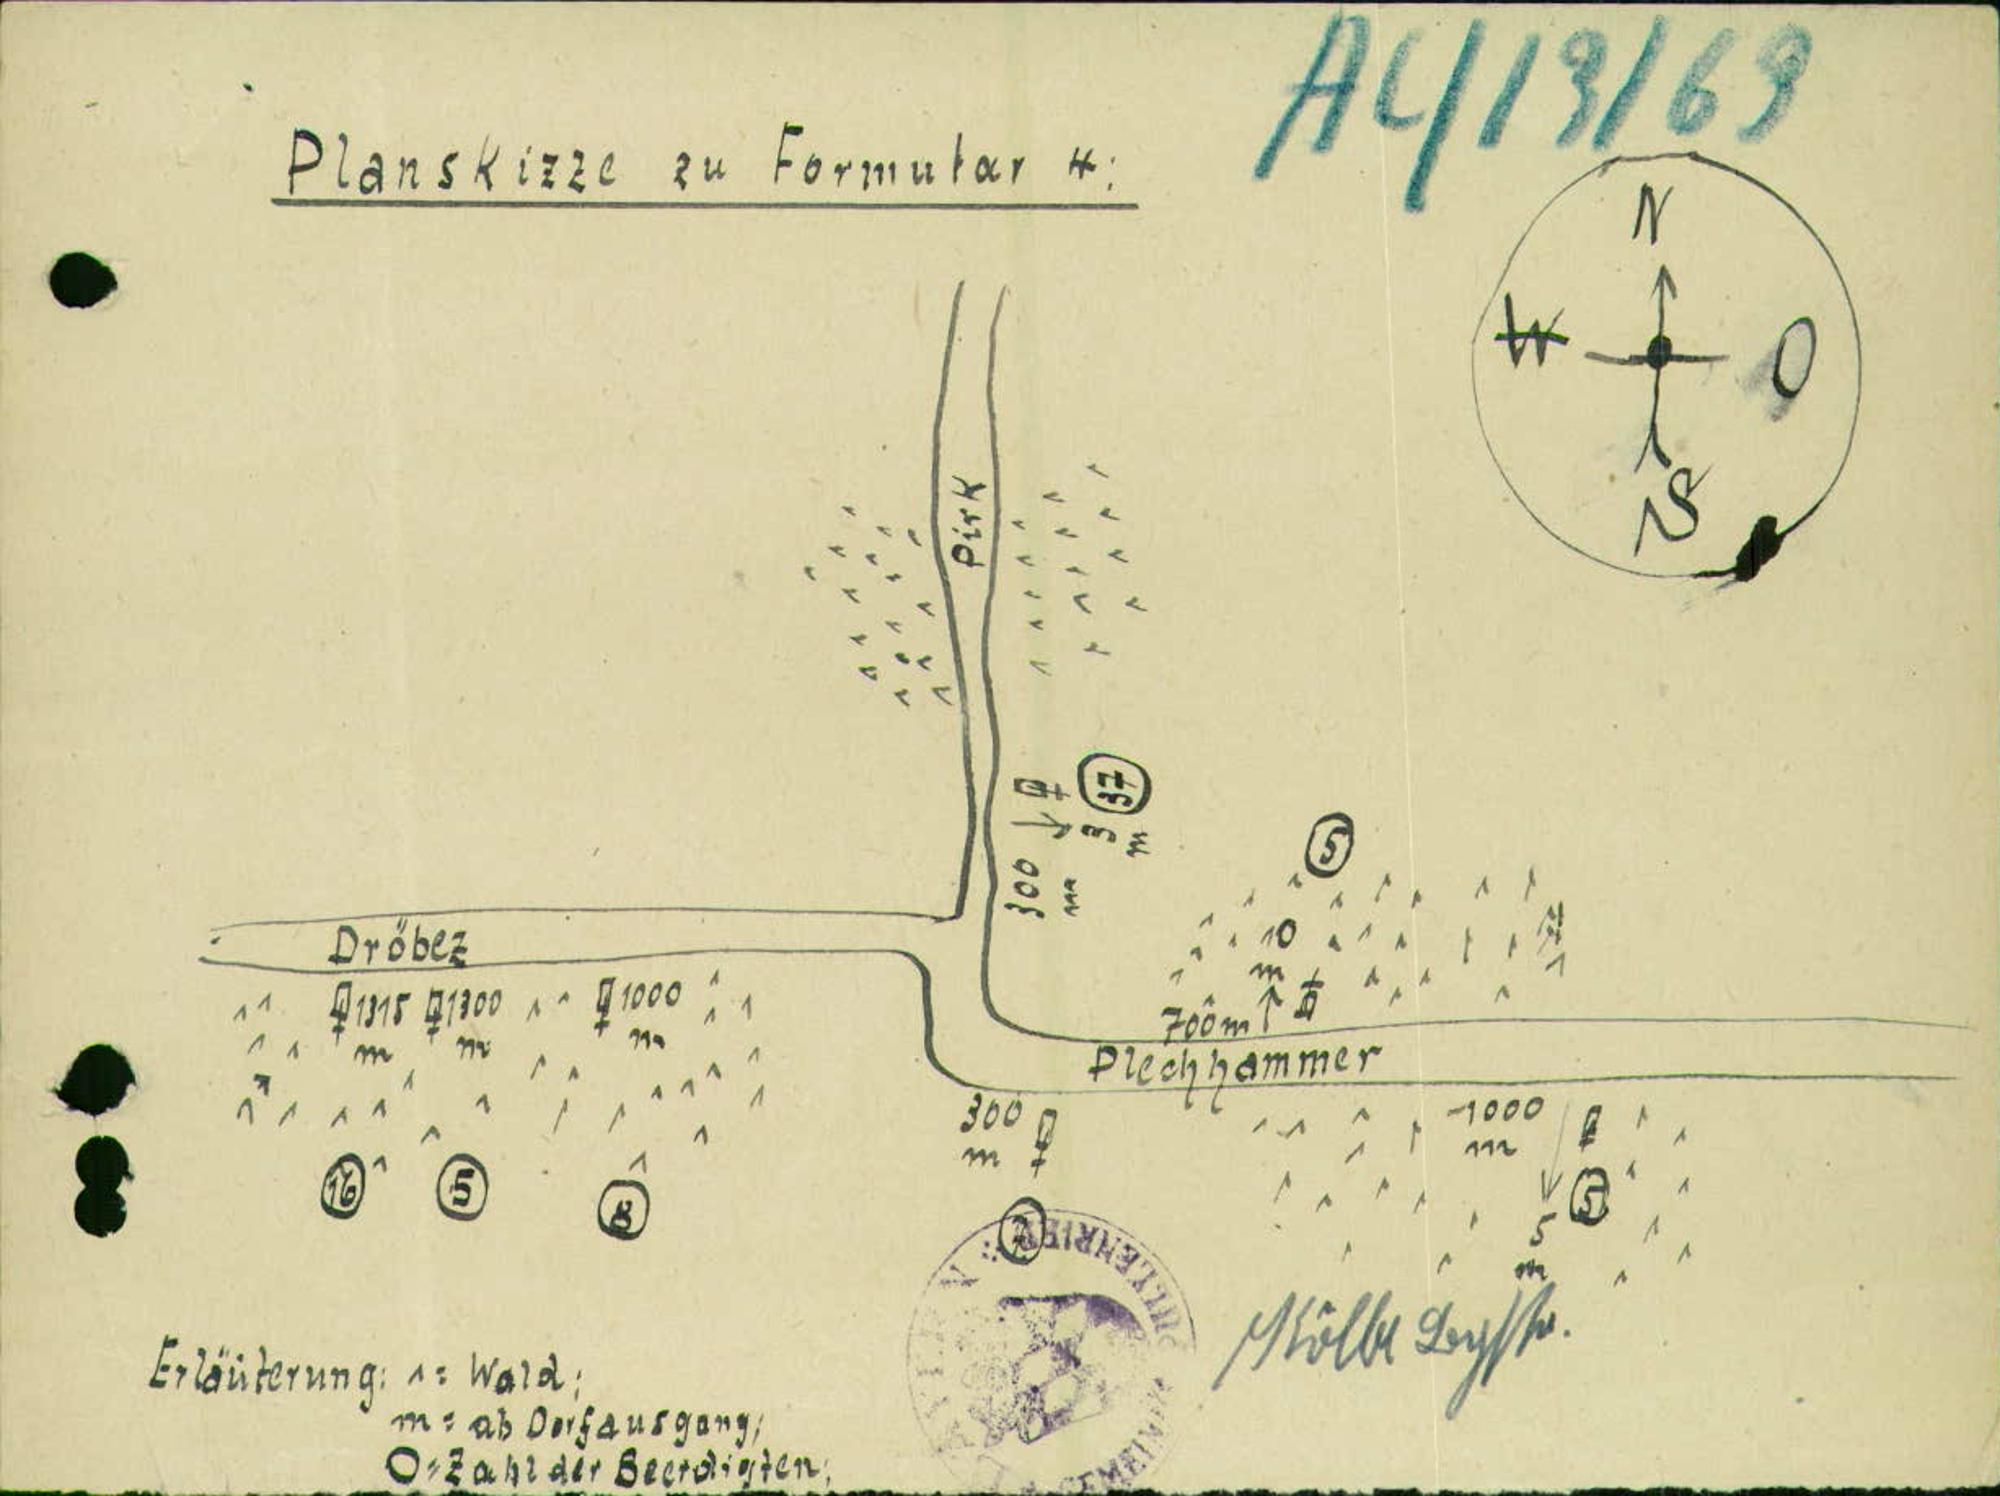 AC/13/69
Planskizze zu Formular 4:
N
W
O
S
Pirk
37
300 m
3 m
5
10 m
700 m
Dröbez
1315 m
1300 m
1000 m
Plechhammer
300 m
1000 m
5
5 m
16
5
8
GEMEINDE
Erläuterung: ^ = Wald;
m = ab Dorfausgang;
O = Zahl der Beerdigten;